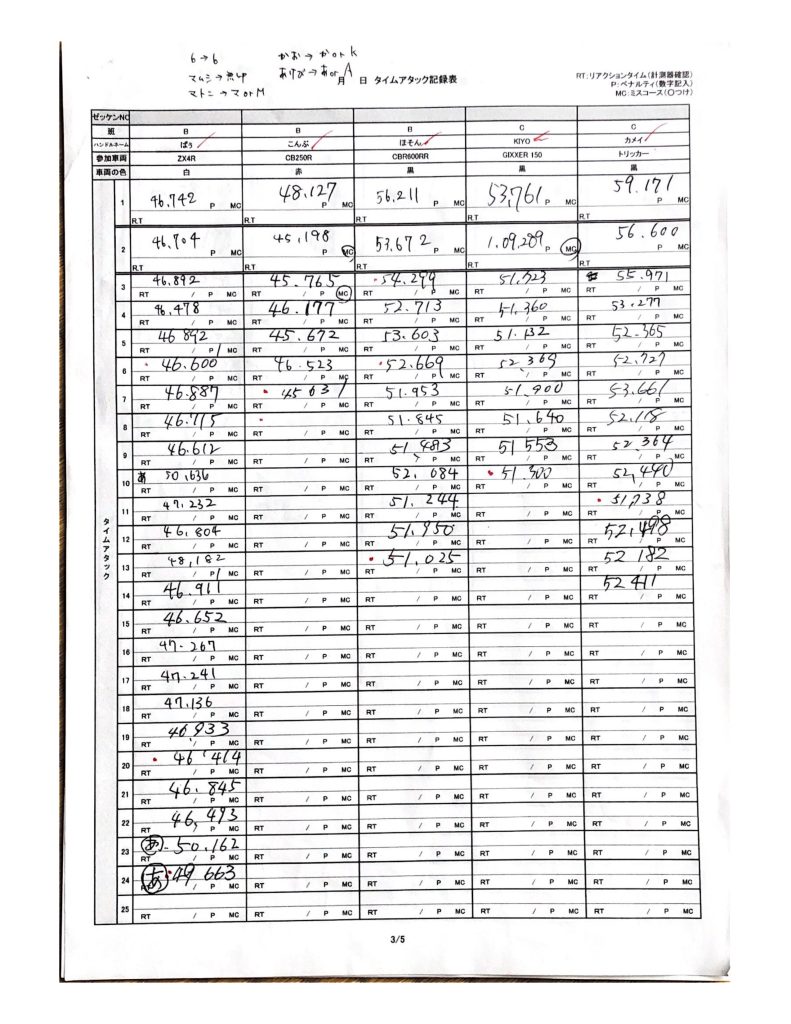 6→6 かお→かorK
マムシ→無印 あけび→あorA
マトン→マorM
月 日 タイムアタック記録表
RT:リアクションタイム(計測器確認)
P:ペナルティ(数字記入)
MC:ミスコース(〇つけ)
ゼッケンNO
班 B B B C C
ハンドルネーム ぱぅ こんぶ ほそん KIYO カメイ
参加車両 ZX4R CB250R CBR600RR GIXXER 150 トリッカー
車両の色 白 赤 黒 黒 黒
タイムアタック
1 46.742 P MC 48.127 P MC 56.211 P MC 53.761 P MC 59.171 P MC
R.T R.T R.T R.T R.T
2 46.704 P MC 45.198 P MC 53.672 P MC 1.09.289 P MC 56.600 P MC
R.T R.T R.T R.T R.T
3 46.892 45.765 54.299 51.723 55.971
RT / P MC RT / P MC RT / P MC RT / P MC RT / P MC
4 46.478 46.177 52.713 51.360 53.277
RT / P MC RT / P MC RT / P MC RT / P MC RT / P MC
5 46.892 45.672 53.603 51.132 52.365
RT / P1 MC RT / P MC RT / P MC RT / P MC RT / P MC
6 46.600 46.523 52.669 52.369 52.727
RT / P MC RT / P MC RT / P MC RT / P MC RT / P MC
7 46.887 45.631 51.953 51.900 53.661
RT / P MC RT / P MC RT / P MC RT / P MC RT / P MC
8 46.715 51.845 51.640 52.118
RT / P MC RT / P MC RT / P MC RT / P MC RT / P MC
9 46.612 51.483 51553 52.364
RT / P MC RT / P MC RT / P MC RT / P MC RT / P MC
10 あ 50.636 52.084 51.300 52.440
RT / P MC RT / P MC RT / P MC RT / P MC RT / P MC
11 47.232 51.244 51.738
RT / P MC RT / P MC RT / P MC RT / P MC RT / P MC
12 46.804 51.950 52.498
RT / P MC RT / P MC RT / P MC RT / P MC RT / P MC
13 48.182 51.025 52 182
RT / P1 MC RT / P MC RT / P MC RT / P MC RT / P MC
14 46.911 52 411
RT / P MC RT / P MC RT / P MC RT / P MC RT / P MC
15 46.652
RT / P MC RT / P MC RT / P MC RT / P MC RT / P MC
16 47.267
RT / P MC RT / P MC RT / P MC RT / P MC RT / P MC
17 47.241
RT / P MC RT / P MC RT / P MC RT / P MC RT / P MC
18 47.136
RT / P MC RT / P MC RT / P MC RT / P MC RT / P MC
19 46933
RT / P MC RT / P MC RT / P MC RT / P MC RT / P MC
20 46.464
RT / P MC RT / P MC RT / P MC RT / P MC RT / P MC
21 46.845
RT / P MC RT / P MC RT / P MC RT / P MC RT / P MC
22 46.493
RT / P MC RT / P MC RT / P MC RT / P MC RT / P MC
23 あ 50.162
RT / P MC RT / P MC RT / P MC RT / P MC RT / P MC
24 あ 49 663
RT / P MC RT / P MC RT / P MC RT / P MC RT / P MC
25
RT / P MC RT / P MC RT / P MC RT / P MC RT / P MC
3/5